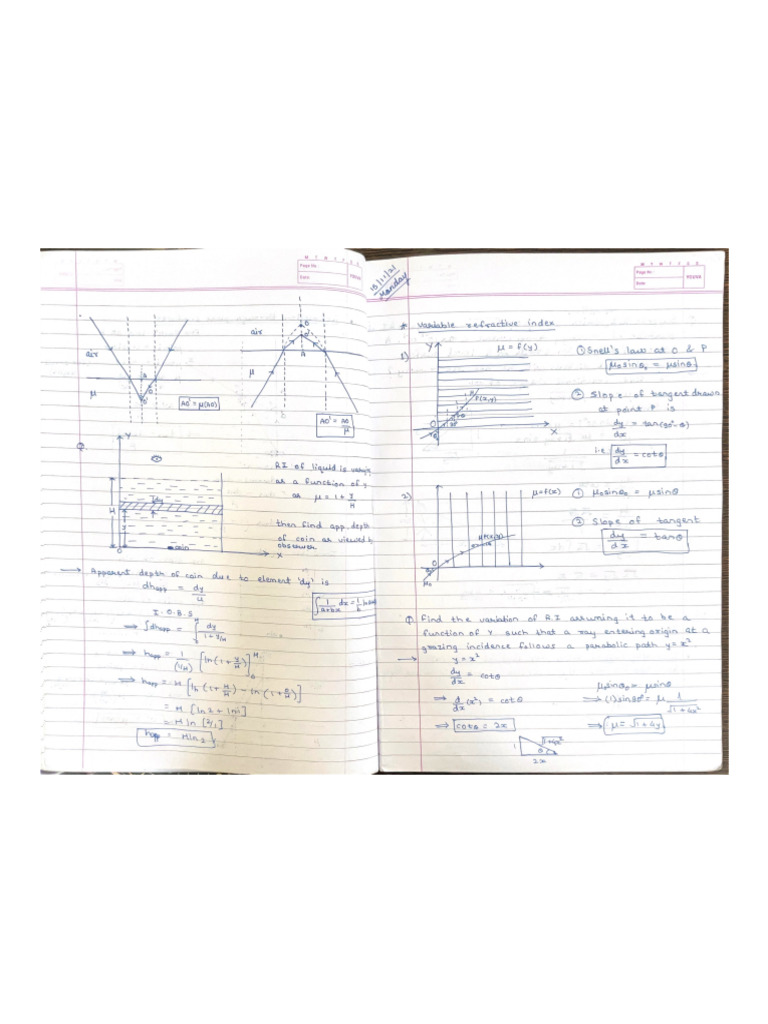 M T W T F S S
Page No.:
Date:
YOUVA
air
μ
A
O
O'
AO' = μ(AO)
air
μ
O
O'
A
AO' = AO/μ
Q.
Y
H
dy
y
O
coin
X
RI of liquid is varying
as a function of y
as μ = 1 + y/H
then find app. depth
of coin as viewed by
observer
→ Apparent depth of coin due to element 'dy' is
dhapp = dy/μ
∫ 1/(A+Bx) dx = 1/B
I.O.B.S
⇒ ∫dhapp = ∫ dy/(1+y/H)
⇒ happ = 1/(1/H) [ln(1+y/H)]
⇒ happ = H [ln(1+H/H) - ln(1+0/H)]
= H [ln2 + ln1]
= H ln [2/1]
happ = H ln 2
M T W T F S S
Page No.:
Date:
YOUVA
Monday
# Variable refractive index
1)
Y
μ = f(y)
P(x,y)
O
X
① Snell's law at O & P
μ₀sinθ₀ = μsinθ
② Slope of tangent drawn
at point P is
dy/dx = tan(90°-θ)
i.e dy/dx = cotθ
2)
μ=f(x)
P(x,y)
O
μ₀
① μ₀sinθ₀ = μsinθ
② Slope of tangent
dy/dx = tanθ
Q. Find the variation of R.I assuming it to be a
function of Y such that a ray entering origin at a
grazing incidence follows a parabolic path y=x²
→ y = x²
dy/dx = cotθ
⇒ d/dx (x²) = cotθ
⇒ cotθ = 2x
μ₀sinθ₀ = μsinθ
⇒ (1)sin90° = μ 1/√(1+4x²)
⇒ μ = √(1+4y)
1
√(1+4x²)
θ
2x